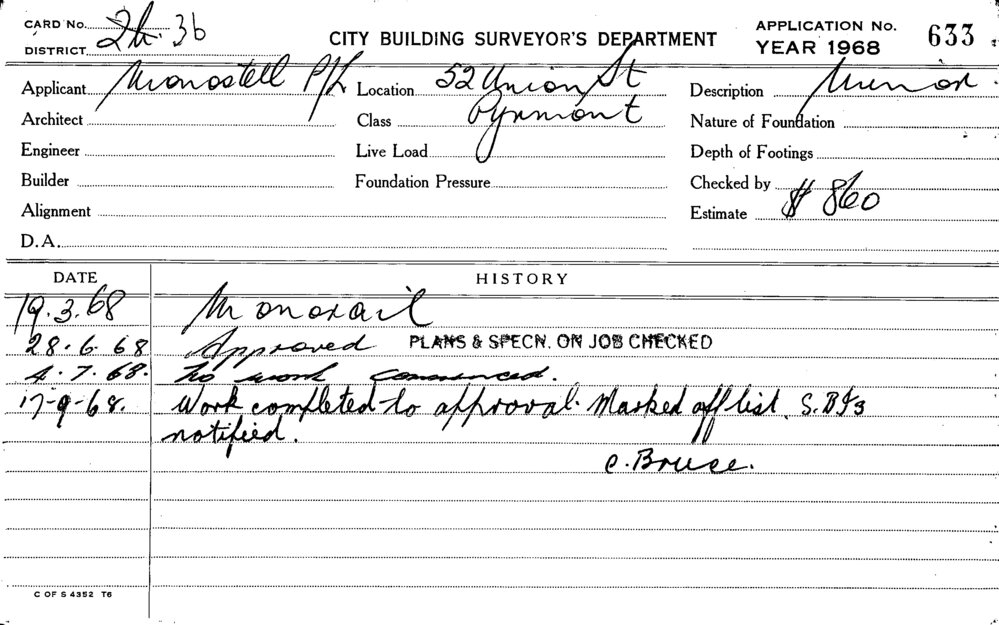 CARD No. 2h. 36
DISTRICT
CITY BUILDING SURVEYOR'S DEPARTMENT
APPLICATION No. 633
YEAR 1968
Applicant Monostell P/L Location 52 Union St Description Minor
Architect Class Pyrmont Nature of Foundation
Engineer Live Load Depth of Footings
Builder Foundation Pressure Checked by
Alignment Estimate $ 860
D.A.
DATE HISTORY
19.3.68 Monorail
28.6.68 Approved PLANS & SPECN. ON JOB CHECKED
4.7.68. No work commenced.
17-9-68. Work completed to approval. Marked off list.
notified.
C. Bruse.
C OF S 4352 T6